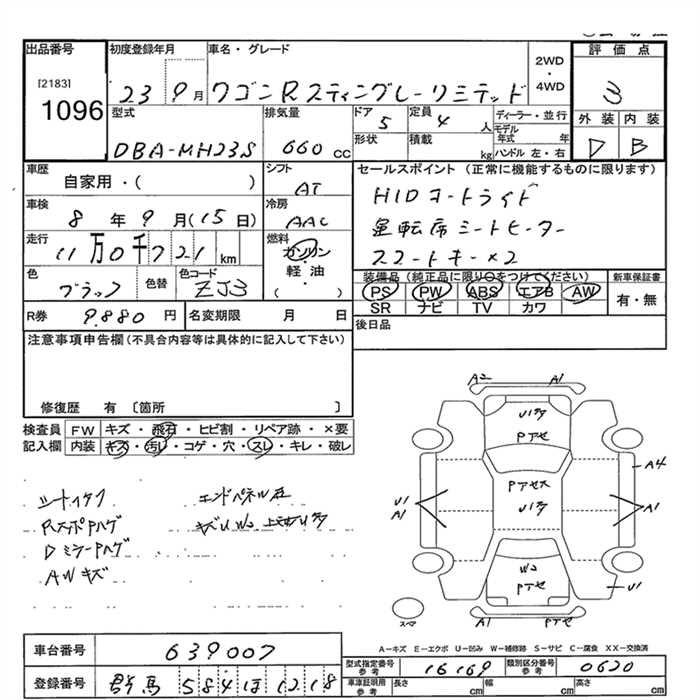 出品番号
[2183]
1096
初度登録年月
23 9月
車名・グレード
ワゴンRスティングレーリミテッド
2WD
・
4WD
評価点
3
外装 内装
D B
型式
DBA-MH23S
排気量
660 cc
ドア 5
形状
定員 4 人
積載 kg
ディーラー・並行
モデル年式 年
ハンドル 左・右
車歴
自家用・( )
シフト
AT
車検
8年9月(15日)
冷房
AAC
走行
11万0千721km
燃料
ガソリン
・
軽油
( )
色
ブラック
色替
色コード
ZJ3
セールスポイント (正常に機能するものに限ります)
HIDオートライト
運転席シートヒーター
スマートキー×2
装備品 (純正品に限り○をつけてください)
PS PW ABS エアB AW
SR ナビ TV カワ
新車保証書
有・無
R券 9.880円
名変期限 月 日
後日品
注意事項申告欄(不具合内容等は具体的に記入して下さい)
修復歴 有〔箇所 〕
検査員
記入欄
FW キズ・飛石・ヒビ割・リペア跡・×要
内装 キズ・汚レ・コゲ・穴・スレ・キレ・破レ
シートイタミ
RスポPハゲ
DミラーPハゲ
AWキズ
エンドパネル
A2 A1
U1
Pアセ
U1
A1
A4
A1
W2
Pアセ
U1
A1 Pアセ
スマ
A-キズ E-エクボ U-凹み W-補修跡 S-サビ C-腐食 XX-交換済
車台番号 639007
登録番号 群馬 584 ほ 1218
型式指定番号 参考 16169
類別区分番号 参考 0620
車庫証明用 参考 長さ cm 幅 cm 高さ cm